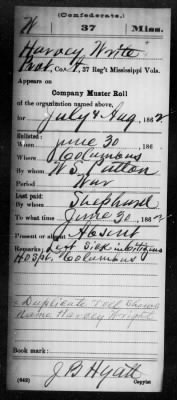 (Confederate.)
W 37 Miss.
Harvey Write
Pvt., Co. F, 37 Reg't Mississippi Vols.
Appears on
Company Muster Roll
of the organization named above,
for July & Aug, 1862
Enlisted:
When June 30, 186
Where Columbus
By whom W. S. Patton
Period War
Last paid:
By whom Shepherd
To what time June 30, 1862
Present or absent Absent
Remarks: Left Sick in Citizens
Hospt. Columbus
Duplicate roll shows
name Harvey Wright
Book mark:
J B Hyatt
(642) Copyist